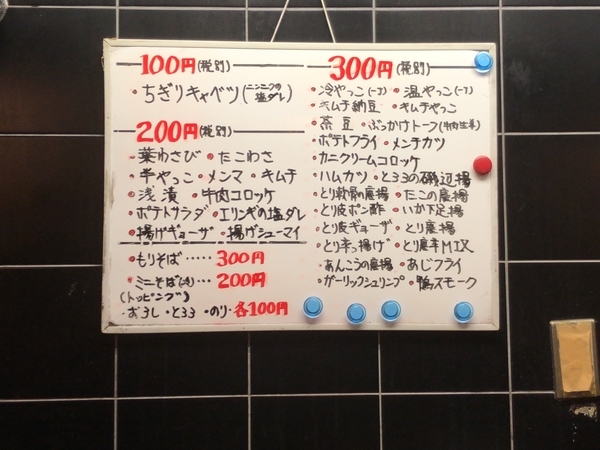 100円(税別)
・ちぎりキャベツ(ニンニクの塩ダレ)
200円(税別)
・葉わさび ・たこわさ
・半やっこ ・メンマ ・キムチ
・浅漬 ・牛肉コロッケ
・ポテトサラダ ・エリンギの塩ダレ
・揚げギョーザ ・揚げシューマイ
・もりそば……300円
・ミニそば(冷)…200円
(トッピング)
・おろし ・とろろ ・のり・各100円
300円(税別)
・冷やっこ(一丁) ・温やっこ(一丁)
・キムチ納豆 ・キムチやっこ
・茶豆 ・ぶっかけトーフ
・ポテトフライ ・メンチカツ
・カニクリームコロッケ
・ハムカツ ・とろろの磯辺揚
・とり軟骨の唐揚 ・たこの唐揚
・とり皮ポン酢 ・いか下足揚
・とり皮ギョーザ ・とり唐揚
・とり赤っ揚げ ・とり唐辛MIX
・あんこうの唐揚 ・あじフライ
・ガーリックシュリンプ ・鴨スモーク